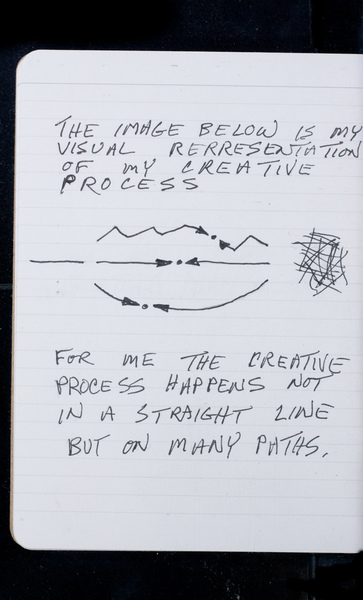 THE IMAGE BELOW IS MY
VISUAL RERRESENTATION
OF MY CREATIVE
PROCESS
FOR ME THE CREATIVE
PROCESS HAPPENS NOT
IN A STRAIGHT LINE
BUT ON MANY PATHS.